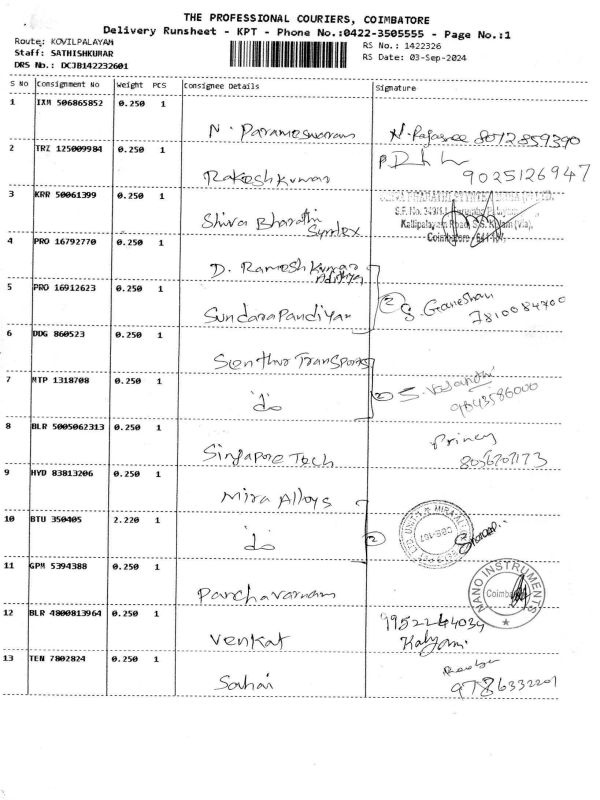 THE PROFESSIONAL COURIERS, COIMBATORE
Delivery Runsheet - KPT - Phone No.:0422-3505555 - Page No.:1
Route: KOVILPALAYAM
RS No.: 1422326
Staff: SATHISHKUMAR
RS Date: 03-Sep-2024
DRS No.: DCJB142232601
S NO Consignment No Weight PCS Consignee Details Signature
1 IXM 506865852 0.250 1
N. Parameswaram N. Pajasree 8012859390
2 TRZ 125009984 0.250 1
Rakesh Kumar 9025126947
3 KRR 50061399 0.250 1
Shiva Bharathi Syntex
S.F. No. 349/1
Kallipalayam Road, S.S. Kulam (Via),
Coimbatore - 641 107.
4 PRO 16792770 0.250 1
D. Ramesh Kumar Adithya
5 PRO 16912623 0.250 1
Sundarapandiyan 2 S. Ganeshan 7810084700
6 DDG 860523 0.250 1
Senthur Transports
7 MTP 1318708 0.250 1
do 2 S. Vasanthi 9843586000
8 BLR 5005062313 0.250 1
Singapore Tech Princy 8056207173
9 HYD 83813206 0.250 1
Mira Alloys
10 BTU 350405 2.220 1
do 2
11 GPM 5394388 0.250 1
Panchavarnam NANO INSTRUMENTS
12 BLR 4800813964 0.250 1
Venkat 9952244034 Kalyani
13 TEN 7802824 0.250 1
Sahai 9786332201